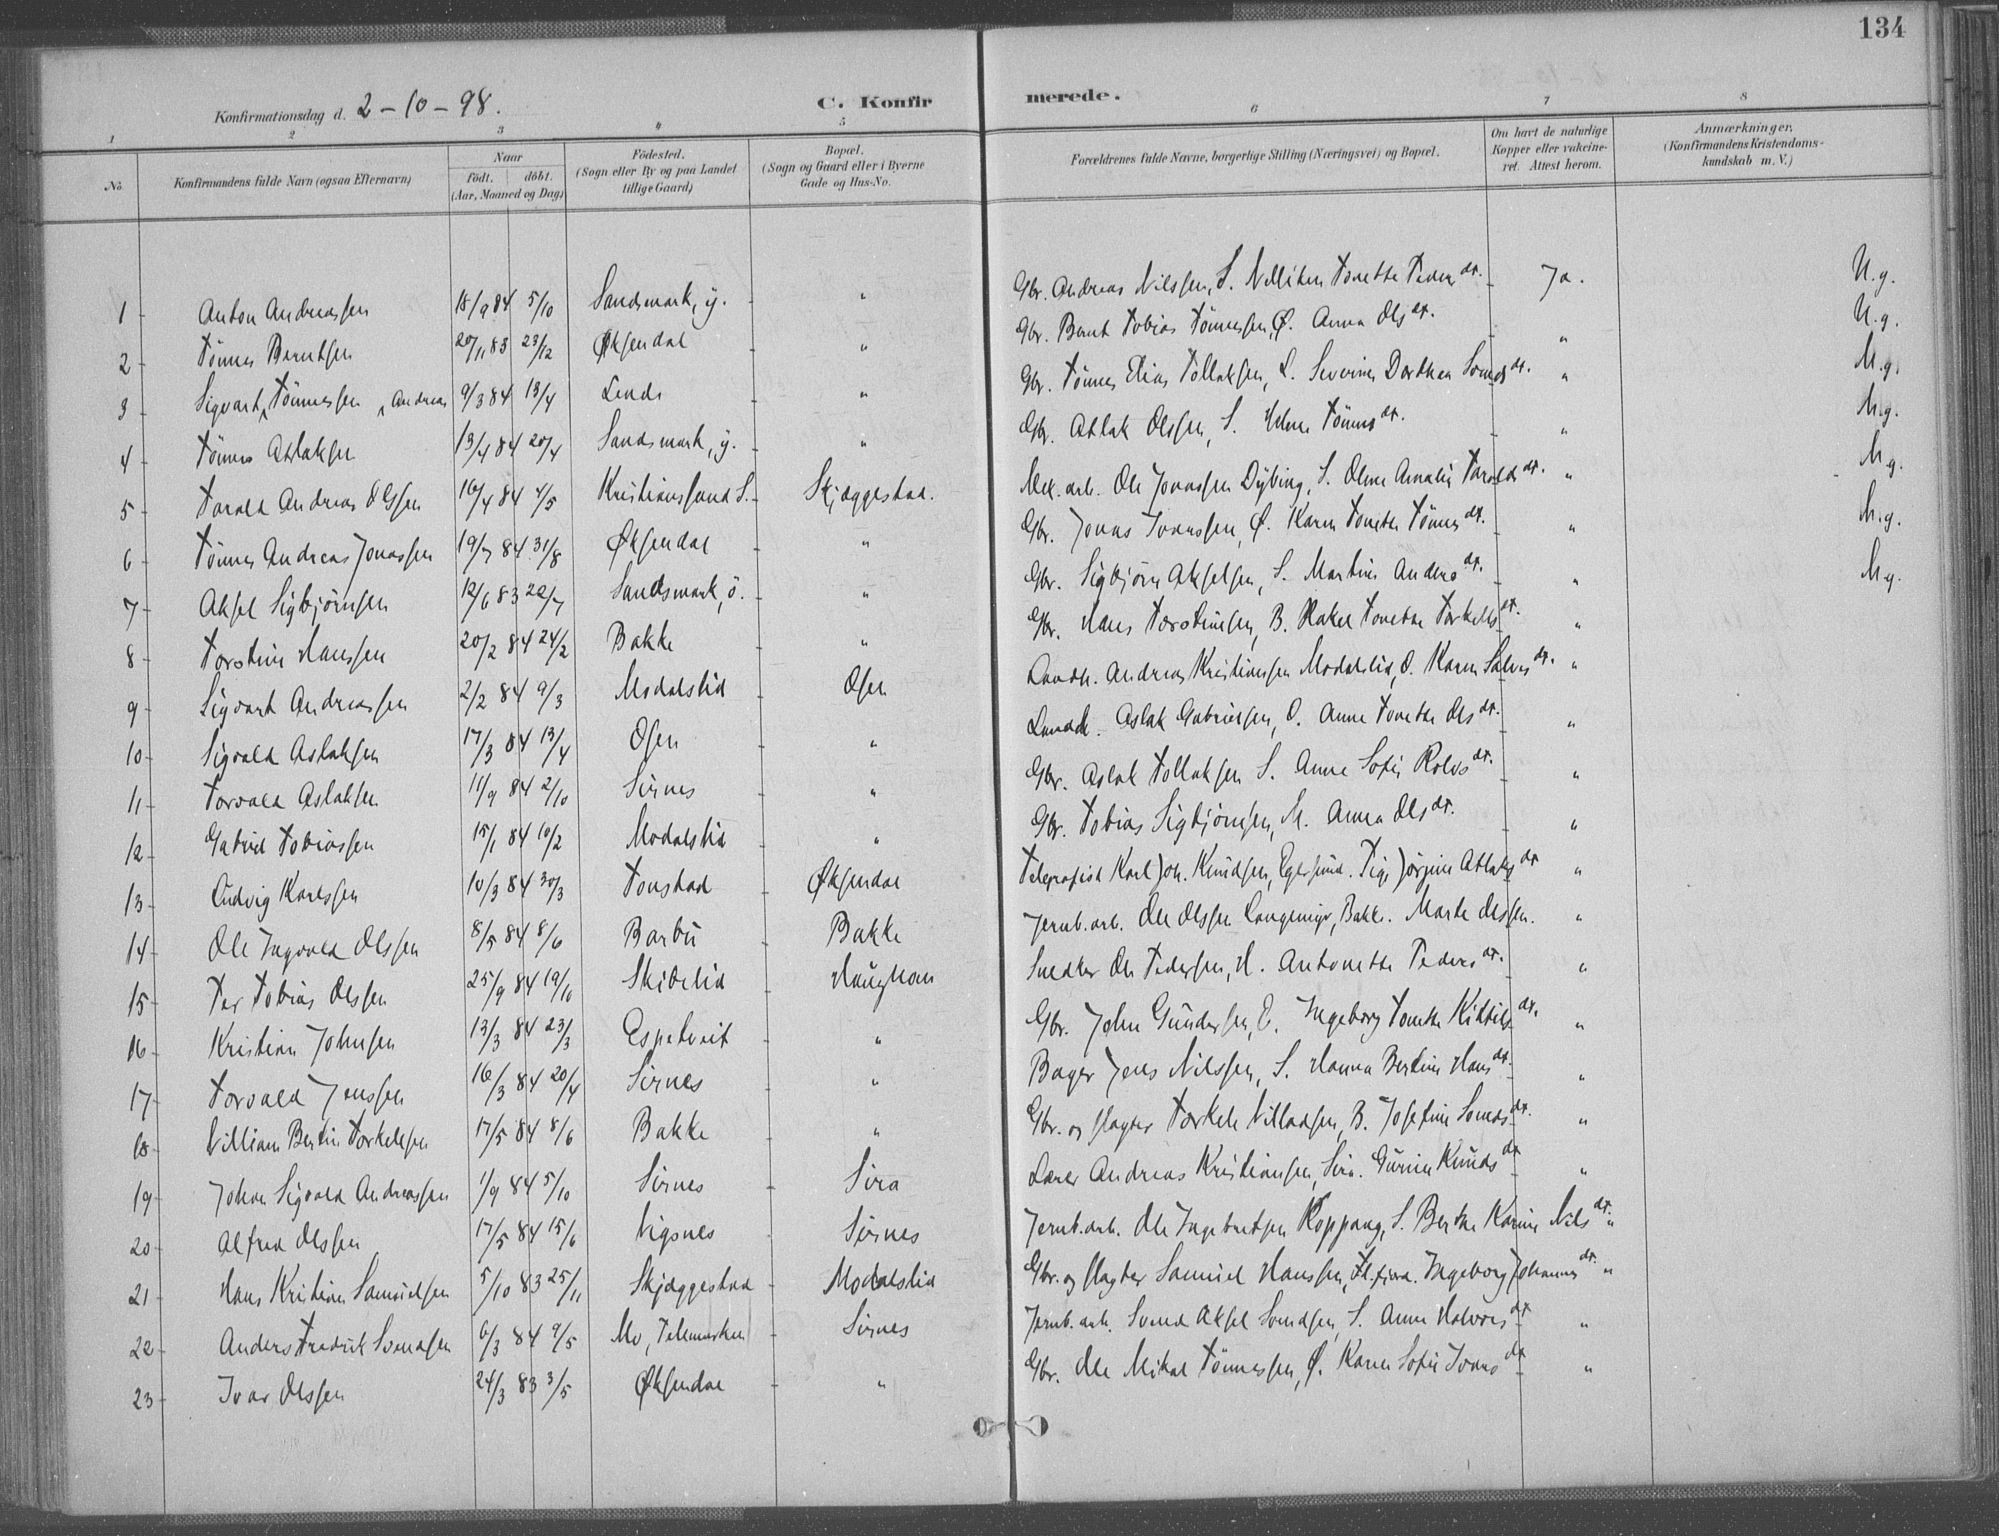 134
Konfirmationsdag d. 2-10-98. C. Konfirmerede.
1 2 3 4 5 6 7 8
No. Konfirmandens fulde Navn (ogsaa Efternavn) Naar födt. döbt. (Aar, Maaned og Dag) Födested. (Sogn eller By og paa Landet tillige Gaard) Bopæl. (Sogn og Gaard eller i Byerne Gade og Hus-No. Forældrenes fulde Navne, borgerlige Stilling (Næringsvei) og Bopæl. Om havt de naturlige Kopper eller vakcineret. Attest herom. Anmærkninger. (Konfirmandens Kristendomskundskab m. V.)
1 Anton Andreassen 18/9 84 5/10 Sandsmark, y. " Gbr. Andreas Nilssen, S. Tonette Peders dr. Ja. M.g.
2 Tönnes Berntsen 20/11 83 23/12 Øksendal " Gbr. Bernt Tobias Tönnessen, Ø. Anna Ols dr. " M.g.
3 Sigvart Tönnessen Andreas 9/3 84 13/4 Lunde " Gbr. Tönnes Elias Tollaksen, L. Severine Dorthea Svends dr. " M.g.
4 Tönnes Atlaksen 13/4 84 20/4 Sandsmark, y. " Gbr. Atlak Olssen, S. Tönnes dr. " M.g.
5 Tarald Andreas Olssen 16/4 84 4/5 Kristianssand S. Skjæggestad. Mek. arb. Ole Jonassen Dybing, S. Oline Amalie Taralds dr. " M.g.
6 Tönnes Andreas Jonassen 19/7 84 31/8 Øksendal " Gbr. Jonas Ivarssen, Ø. Karen Tonette Tönnes dr. " M.g.
7 Aksel Sigbjörnsen 12/6 83 22/7 Sandsmark, ö. " Gbr. Sigbjörn Akselsen, S. Martine Anders dr. " M.g.
8 Torstein Hanssen 20/2 84 24/2 Bakke " Gbr. Hans Torsteinsen, B. Rakel Tonette Torkells dr. "
9 Sigvart Andreassen 2/2 84 9/3 Modalslid Osen Landh. Andreas Kristianssen Modalslid, O. Karen Salves dr. "
10 Sigvald Aslaksen 17/3 84 13/4 Osen " Landh. Aslak Gabrielsen, O. Anne Tonette Ols dr. "
11 Torvald Aslaksen 11/9 84 2/10 Sirnes " Gbr. Aslak Tollaksen S. Anne Sofie Rolvs dr. "
12 Gabriel Tobiassen 15/1 84 10/2 Modalslid " Gbr. Tobias Sigbjörnsen, M. Anna Ols dr. "
13 Ludvig Karlssen 10/3 84 30/3 Tonstad Øksendal Telegrafist Karl Joh. Knudsen, Egersund. Pige Jörgine Atlaks dr "
14 Ole Ingvald Olssen 8/5 84 8/6 Barbu Bakke Jernb. arb. Ole Olssen Langemyr, Bakke. Marte Olssen. "
15 Per Tobias Olssen 25/9 84 19/10 Skibelid Haughom Snedker Ole Pedersen, H. Antonette Peders dr. "
16 Kristian Johnsen 13/3 84 23/3 Espetveit " Gbr. John Gundersen, E. Ingeborg Tonette Kittils dr. "
17 Torvald Jenssen 16/3 84 20/4 Sirnes " Bager Jens Nilssen, S. Hanna Bertine Hans dr. "
18 Villiam Bertin Torkelsen 17/5 84 8/6 Bakke " Gbr. og slagter Torkele Villadsen, B. Josefine Svends dr. "
19 Johan Sigvald Andreassen 1/9 84 5/10 Sirnes Sira Lærer Andreas Kristiansen, Sira. Gurine Knuds dr "
20 Alfred Olssen 17/5 84 15/6 Vigsnes Sirnes Jernb. arb. Ole Ingebretsen Koppang, S. Berthe Karine Nils dr. "
21 Hans Kristian Samuelsen 5/10 83 25/11 Skjæggestad Modalslid Gbr. og slagter Samuel Hanssen, Fl.fjord. Ingeborg Johannes dr. "
22 Anders Fredrik Svendsen 6/3 84 9/5 Mo, Telemarken Sirnes Jernb. arb. Svend Aksel Svendsen, S. Anne Halvors dr. "
23 Ivar Olssen 24/3 83 3/5 Øksendal " Gbr. Ole Mikal Tönnessen, Ø. Karen Sofie Ivars dr "